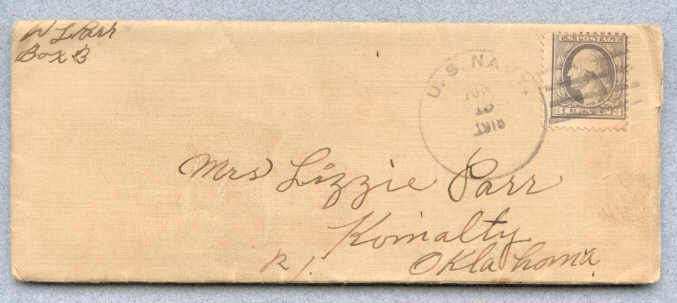 W L Parr
Box B
U.S. NAVY
Mrs Lizzie Parr
Komalty
R 1.
Oklahoma